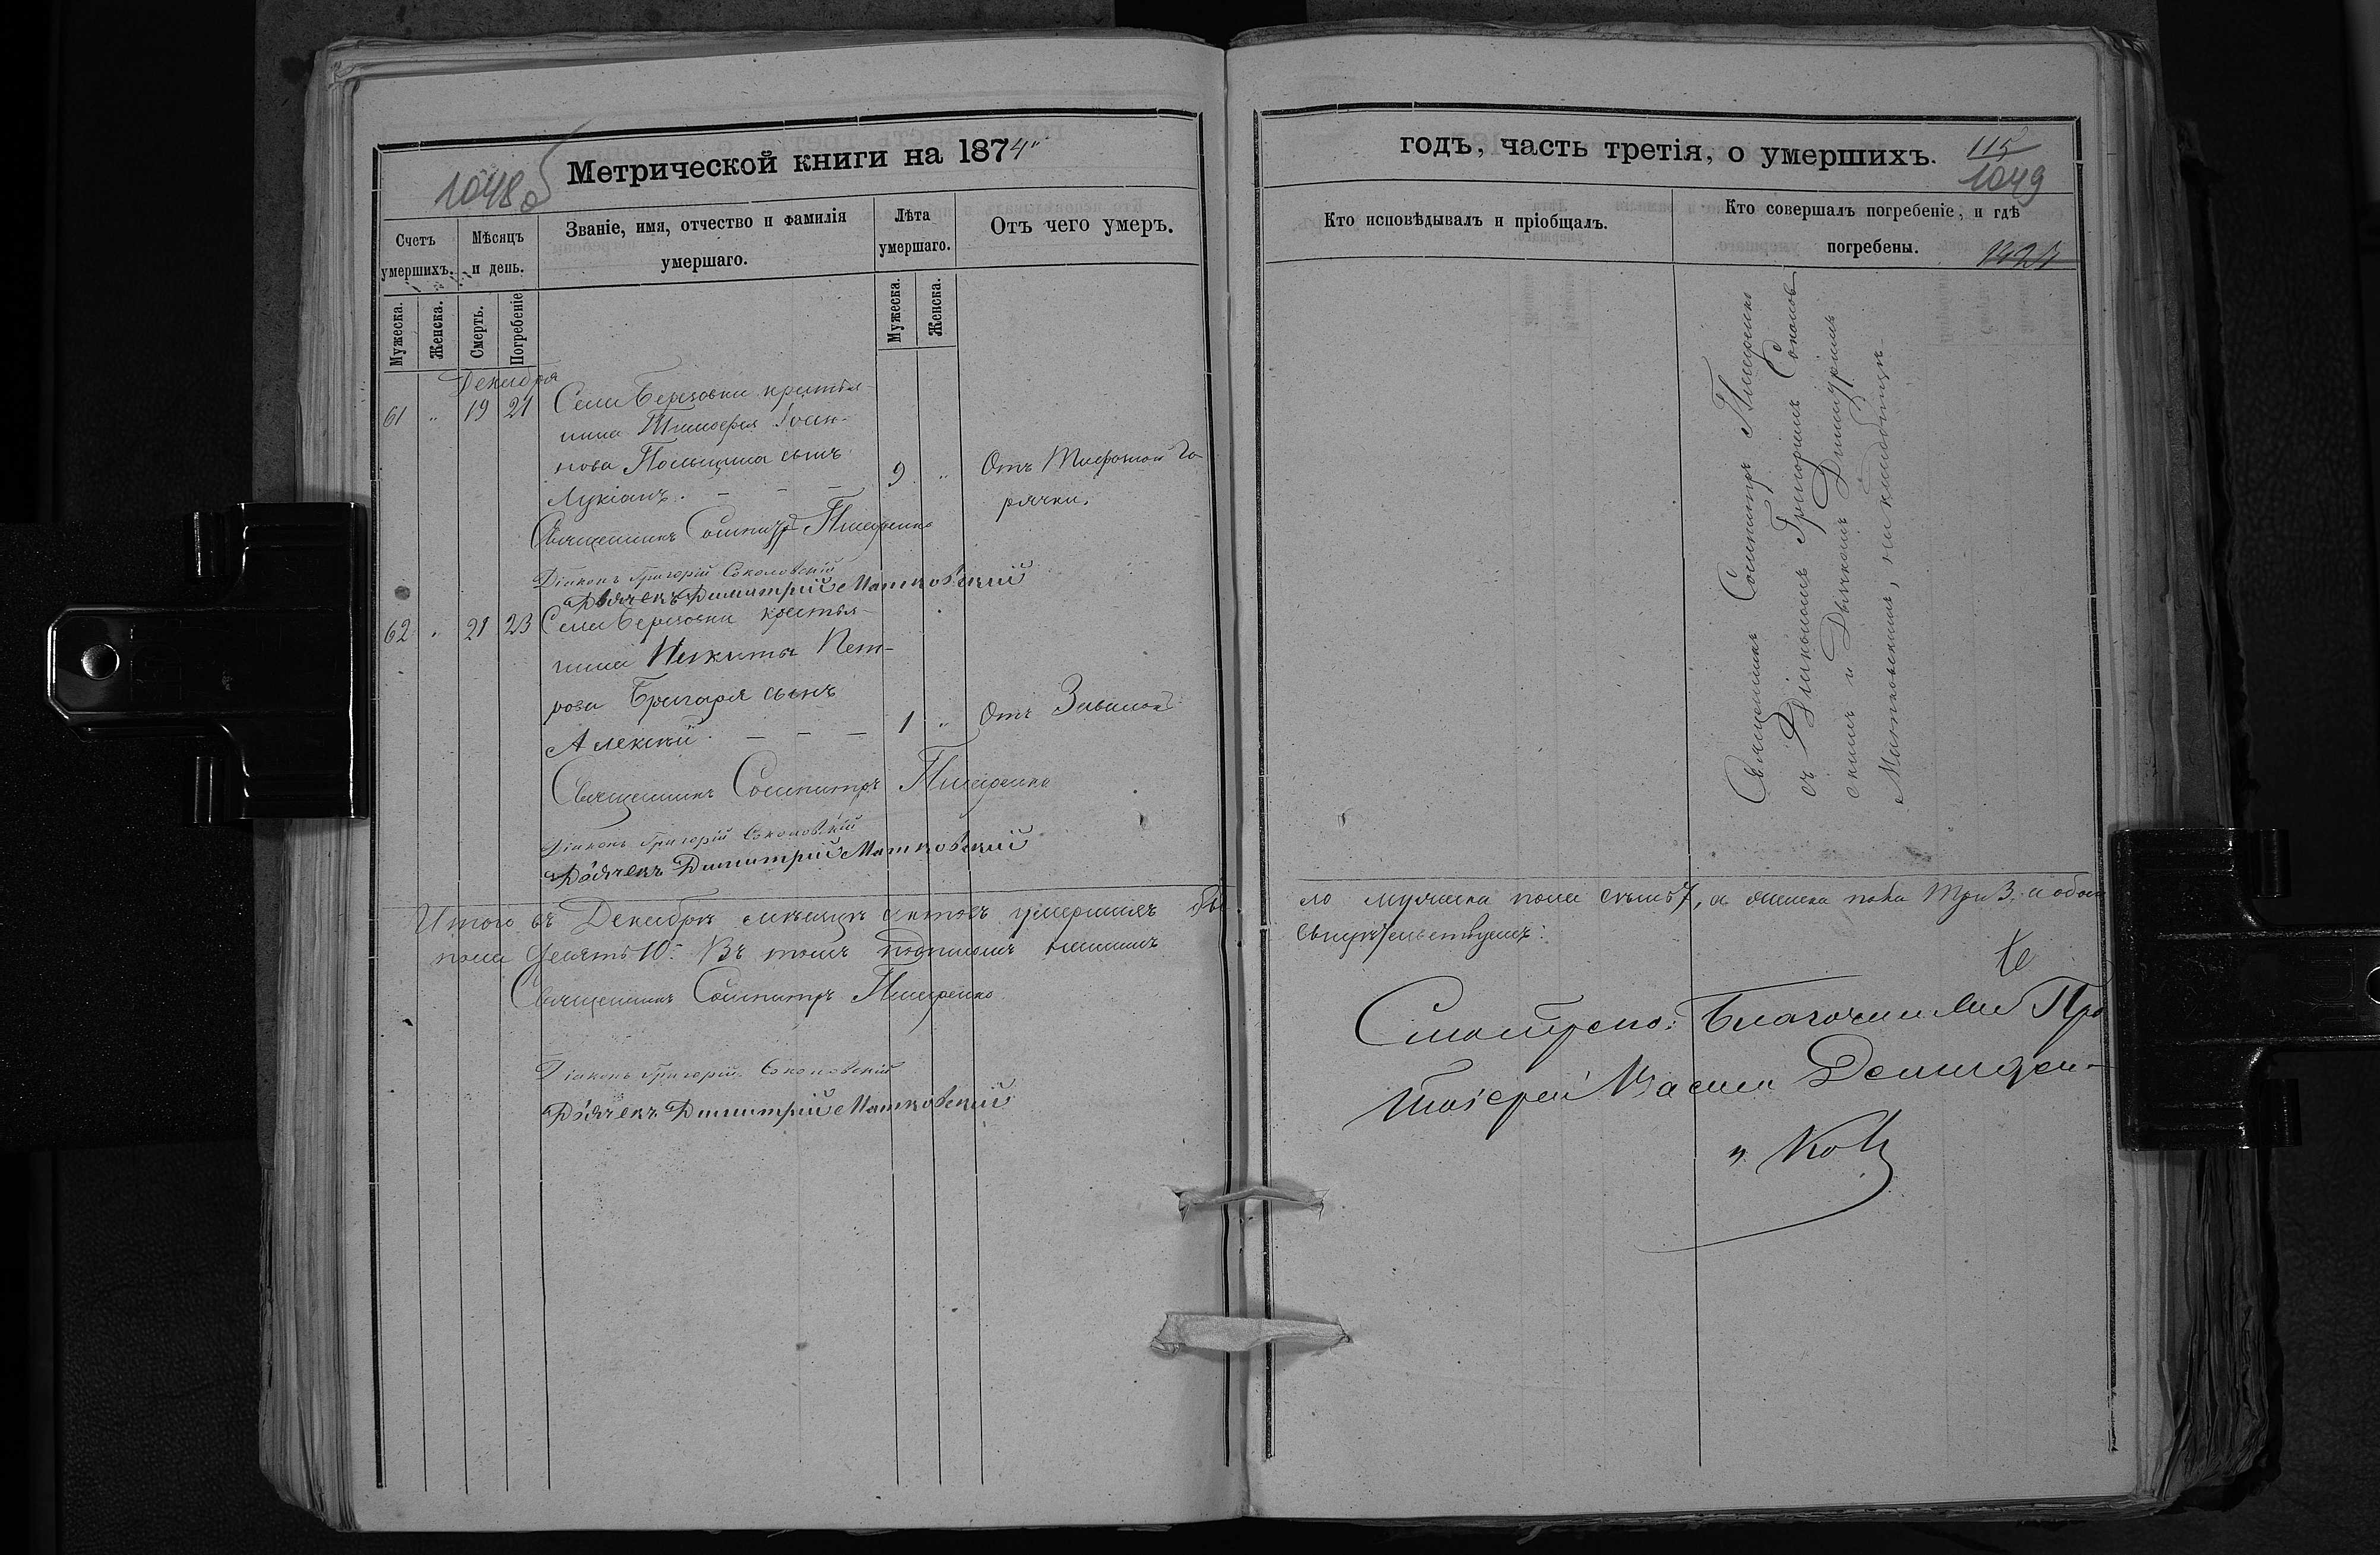 1048 об
Метрической книги на 1874"
Счетъ умершихъ.
Мѣсяцъ и день.
Званіе, имя, отчество и фамилія умершаго.
Лѣта умершаго.
Отъ чего умеръ.
Мужеска.
Женска.
Смерть.
Погребеніе
Мужеска.
Женска.
Декабря
61 " 19 21 Села Березовки крестья-
нина Тимофея Іоан-
нова сынъ
Лукіанъ. - - - 9 " Отъ Тифозной го-
рячки.
Священникъ Сосипатръ Писаренко
Діаконъ Григорій Соколовскій
Дьячекъ Димитрій Матковскій
62 " 21 23 Села Березовки крестья-
нина Никиты Пет-
рова Бригаря сынъ
Алексѣй. - - - 1 " Отъ
Священникъ Сосипатръ Писаренко
Діаконъ Григорій Соколовскій
Дьячекъ Димитрій Матковскій
Итого въ Декабрѣ мѣсяцѣ актовъ умершихъ бы
пола десять 10. Въ томъ подписомъ нашимъ
Священникъ Сосипатръ Писаренко
Діаконъ Григорій Соколовскій
Дьячекъ Димитрій Матковскій
годъ, часть третія, о умершихъ.
115
1049
Кто исповѣдывалъ и пріобщалъ.
Кто совершалъ погребеніе, и гдѣ погребены.
Священникъ Сосипатръ Писаренко
съ Діакономъ Григоріемъ Соколов
скимъ и Дьячкомъ Димитріемъ
Матковскимъ, на кладбищѣ.
ло мужеска пола семь 7, а женска пола три 3, а обоего
свидѣтельствуемъ:
Смотрено: Благочинный Про
тоіерей Василій Демиден-
" ко